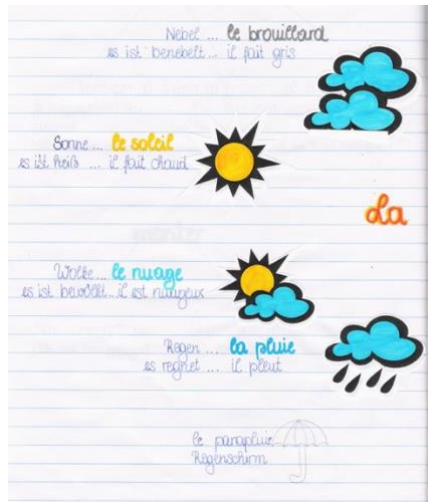 Nebel ... le brouillard
es ist benebelt... il fait gris
Sonne ... le soleil
es ist heiß ... il fait chaud
La
Wolke ... le nuage
es ist bewölkt... il est nuageux
Regen ... la pluie
es regnet ... il pleut
le parapluie
Regenschirm